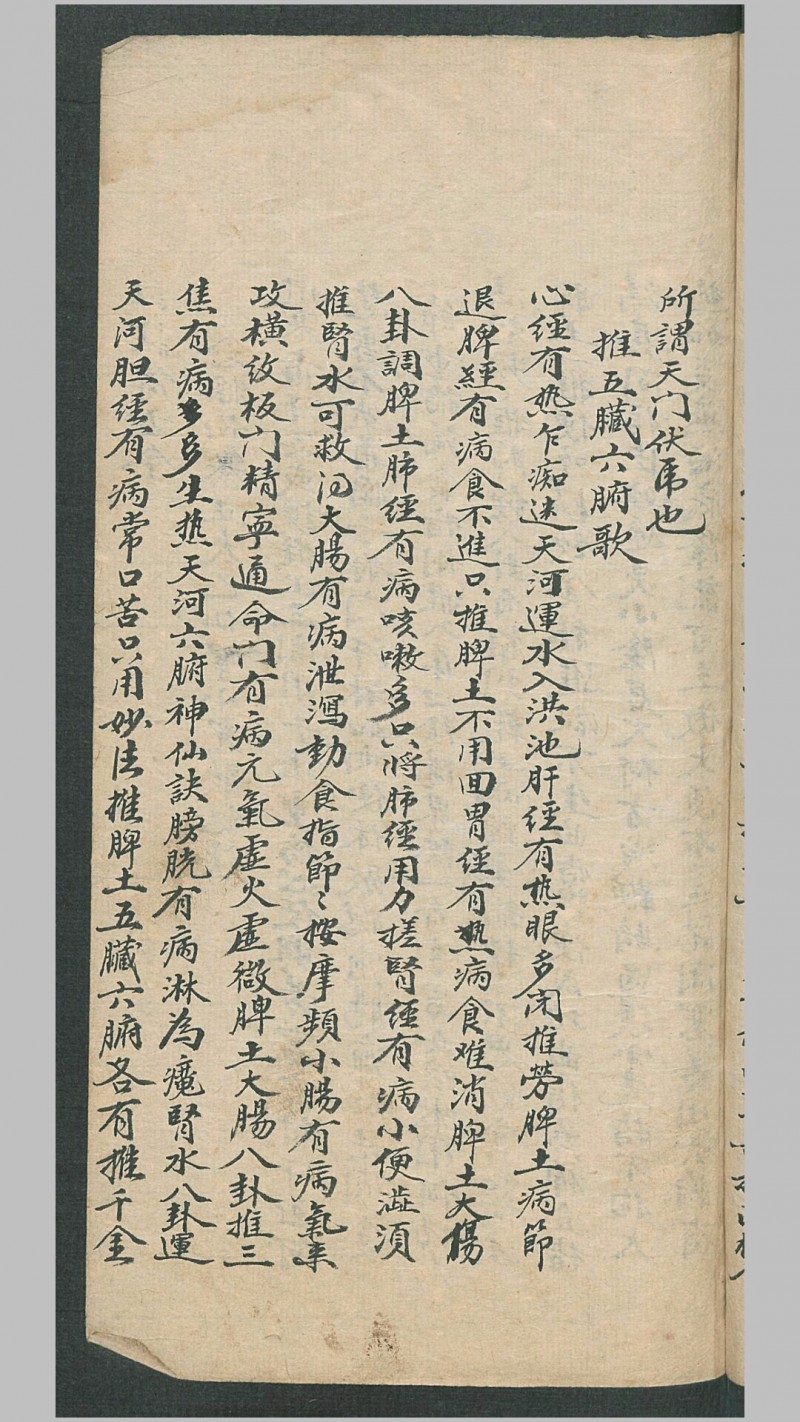 所謂天门伏乕也
推五臟六腑歌
心經有热乍痴迷天河運水入洪池肝經有热眼多闭推劳脾土病節
退脾經有病食不進只推脾土不用回胃經有热病食难消脾土大腸
八卦調脾土肺經有病咳嗽多只將肺經用力搓腎經有病小便澁須
推腎水可救得大腸有病泄瀉勤食指節〻按摩頻小腸有病氣来
攻横纹板门精寧通命门有病元氣虚火虚微脾土大腸八卦推三
焦有病多多生热天河六腑神仙訣膀胱有病淋為瘕腎水八卦運
天河胆經有病常口苦只用妙法推脾土五臟六腑各有推千金